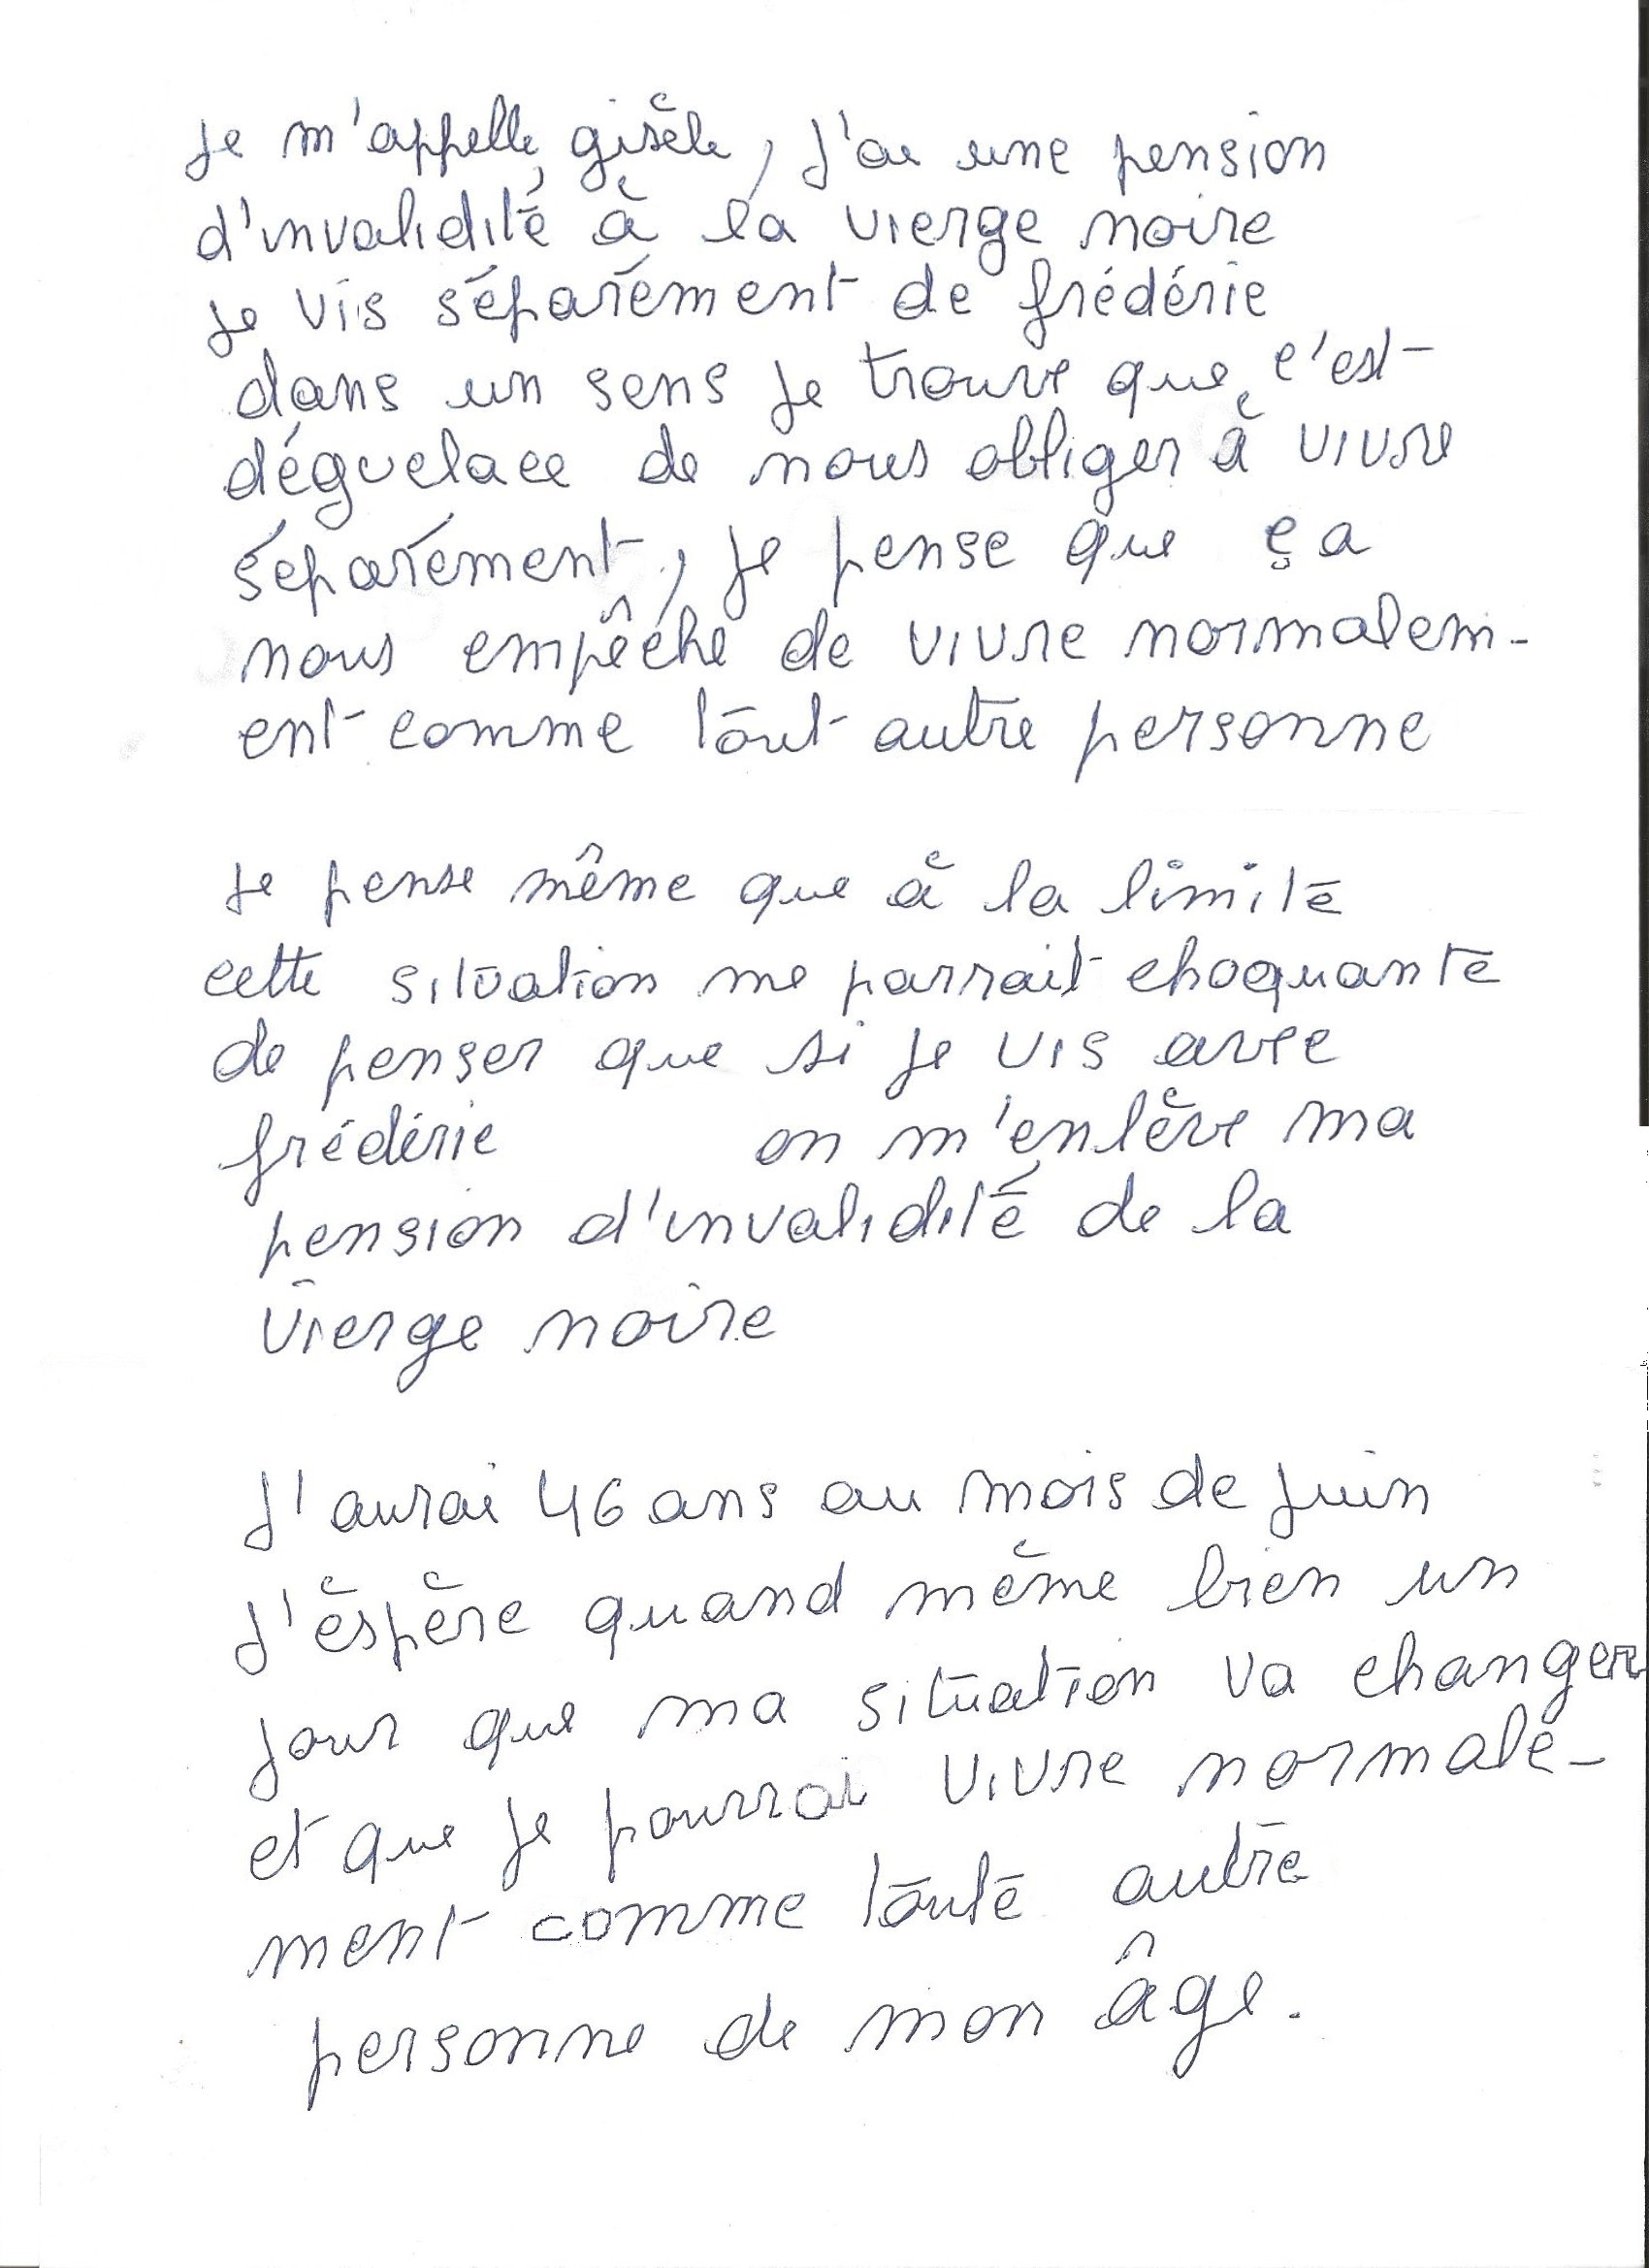 Je m'appelle gisèle, J'ai une pension
d'invalidité à la vierge noire
je vis séparément de frédéric
dans un sens je trouve que c'est
déguelace de nous obliger à vivre
séparément, je pense que ça
nous empêche de vivre normalem-
ent comme tout autre personne
je pense même que à la limite
cette situation me parrait choquante
de penser que si je vis avec
frédéric on m'enlève ma
pension d'invalidité de la
vierge noire
J'aurai 46 ans au mois de juin
J'èspère quand même bien un
jour que ma situation va changer
et que je pourrai vivre normale-
ment comme toute autre
personne de mon âge.